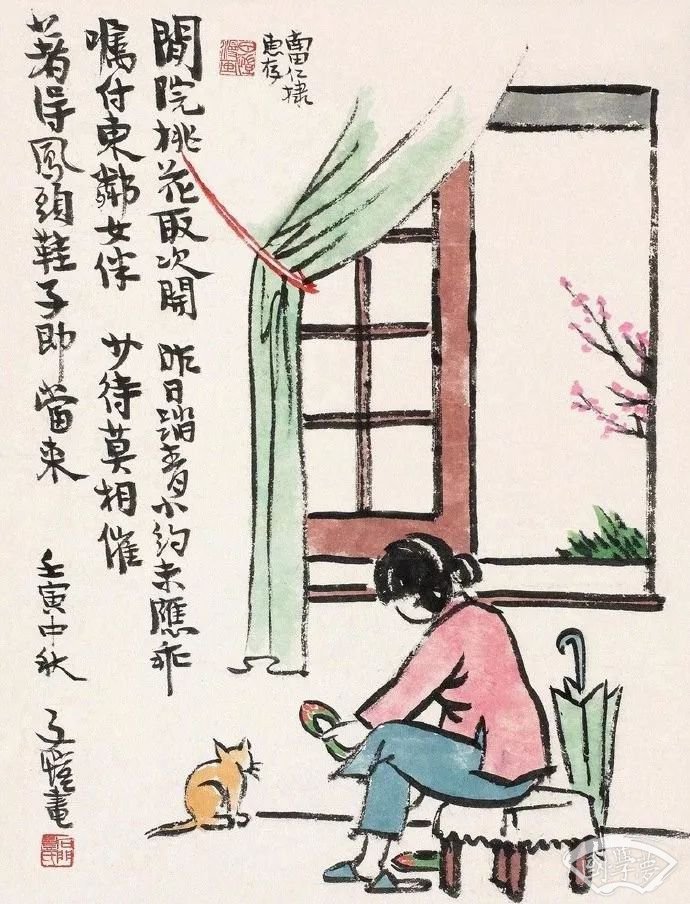 仁棣
惠存
閒院桃花取次開 昨日踏青小約未應乖
囑付東鄰女伴 少待莫相催
著得鳳頭鞋子即當來
壬寅中秋 子愷畫
國學夢